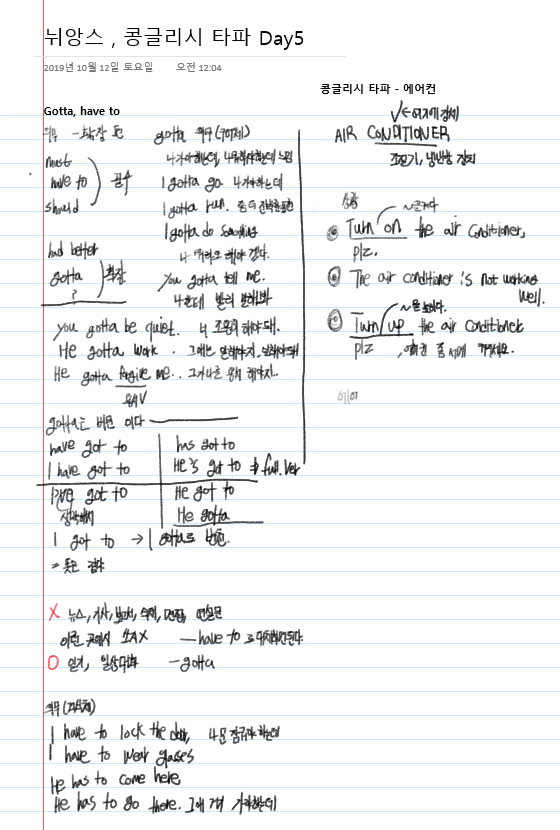 뉘앙스 , 콩글리시 타파 Day5
2019년 10월 12일 토요일 오전 12:04
Gotta, have to
의무 - 확장 표
must
have to 필수
should
had better
gotta 확장
?
gotta 의무(구어체)
나가야하는데,
I gotta go. 나 가야하는데
I gotta run.
I gotta do something
나 뭐라도 해야 겠다.
You gotta tell me.
나한테 빨리 말해봐
you gotta be quiet. 너 조용히해야돼.
He gotta work. 그애는 일해야지, 일해야돼
He gotta forgive me.. 그거 나를 용서 해야지..
용서 V
gotta는 버전 이다
have got to has got to
I have got to He's got to full.ver
I've got to He got to
생략해서 He gotta
I got to → gotta로 변환.
= 뜻은 같다
X 뉴스, 기사, 보고서, 숙제, 면접, 연설문
이런 곳에서 쓰지X - have to 로 대체해야된다
O 일기, 일상대화 - gotta
의무(구어체)
I have to lock the door, 나 문 잠궈야 하는데
I have to wear glasses
He has to come here
He has to go there. 그애 거기 가야하는데
콩글리시 타파 - 에어컨
여기에 강세
AIR CONDITIONER
조절기, 냉난방 장치
상황
~을 켜다
Turn on the air conditioner,
plz.
The air conditioner is not working
well.
~을 높이다.
Turn up the air conditioner
plz , 에어컨 좀 세게 켜주세요.
에어